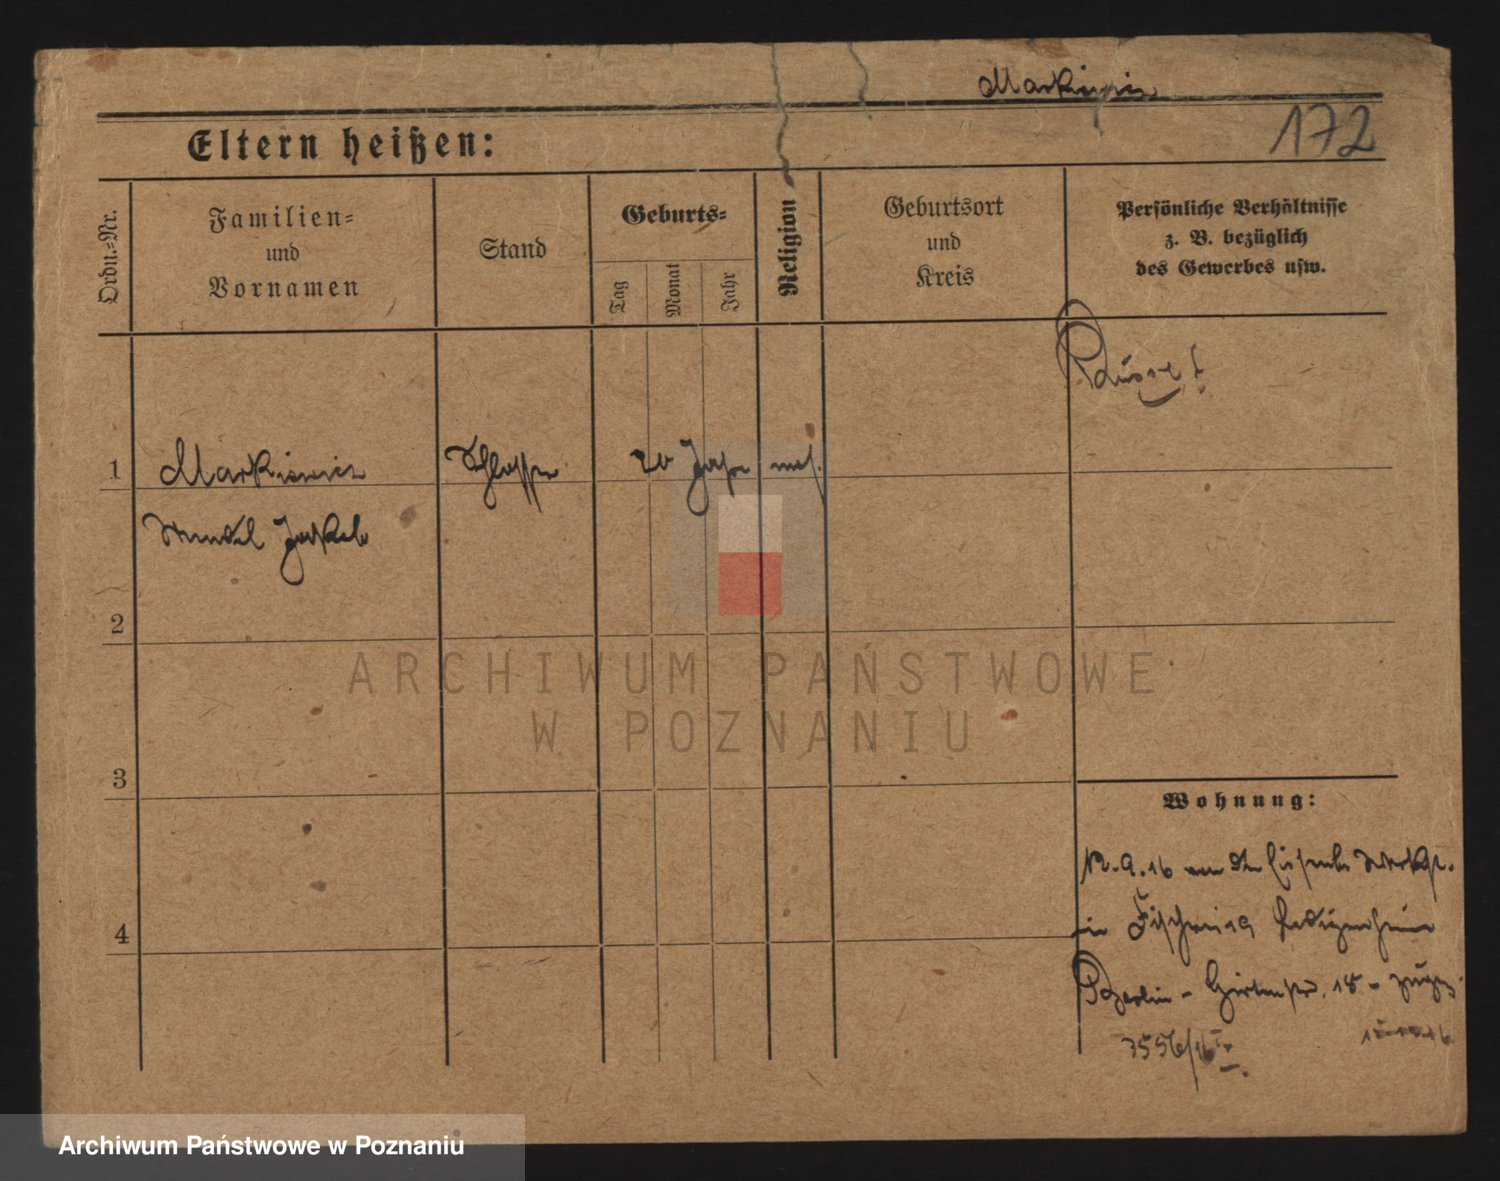 Markiewicz
172
Eltern heißen:
Ordn.-Nr.
Familien-
und
Vornamen
Stand
Geburts-
Tag
Monat
Jahr
Religion
Geburtsort
und
Kreis
Persönliche Verhältnisse
z. B. bezüglich
des Gewerbes usw.
Russe!
1
Markiewicz
Schlosser
20 Jahre
mos.
Mendel Jakob
2
3
Wohnung:
12.9.16
in
4
Berlin - 18 -
7556/16
ARCHIWUM PAŃSTWOWE
W POZNANIU
Archiwum Państwowe w Poznaniu